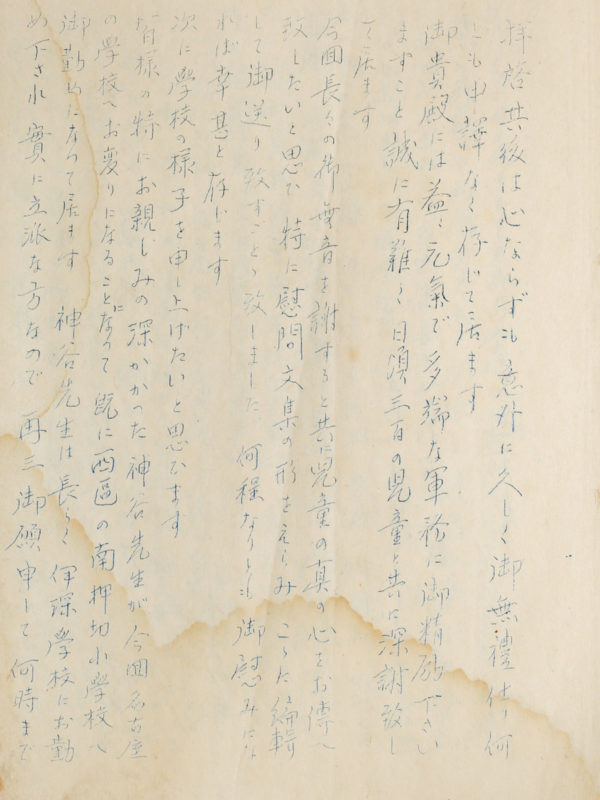 拝啓其後は心ならずも意外に久しく御無禮仕り何
とも申譯なく存じて居ます
御貴殿には益々元氣で多端な軍務に御精励下さい
ますこと誠に有難く日頃三百の児童と共に深謝致し
て居ます
今回長々の御無音を謝すると共に児童の真の心をお傳へ
致したいと思ひ特に慰問文集の形をえらみこゝに編輯
して御送り致すことゝ致しました 何程なりとも御慰みにな
れば幸甚と存じます
次に學校の様子を申し上げたいと思ひます
皆様の特にお親しみの深かかった神谷先生が今回名古屋
の學校へお変りになることになつて既に西區の南押切小學校へ
御勤めになって居ます 神谷先生は長らく伊深學校にお勤
め下され實に立派な方なので再三御願申して何時まで